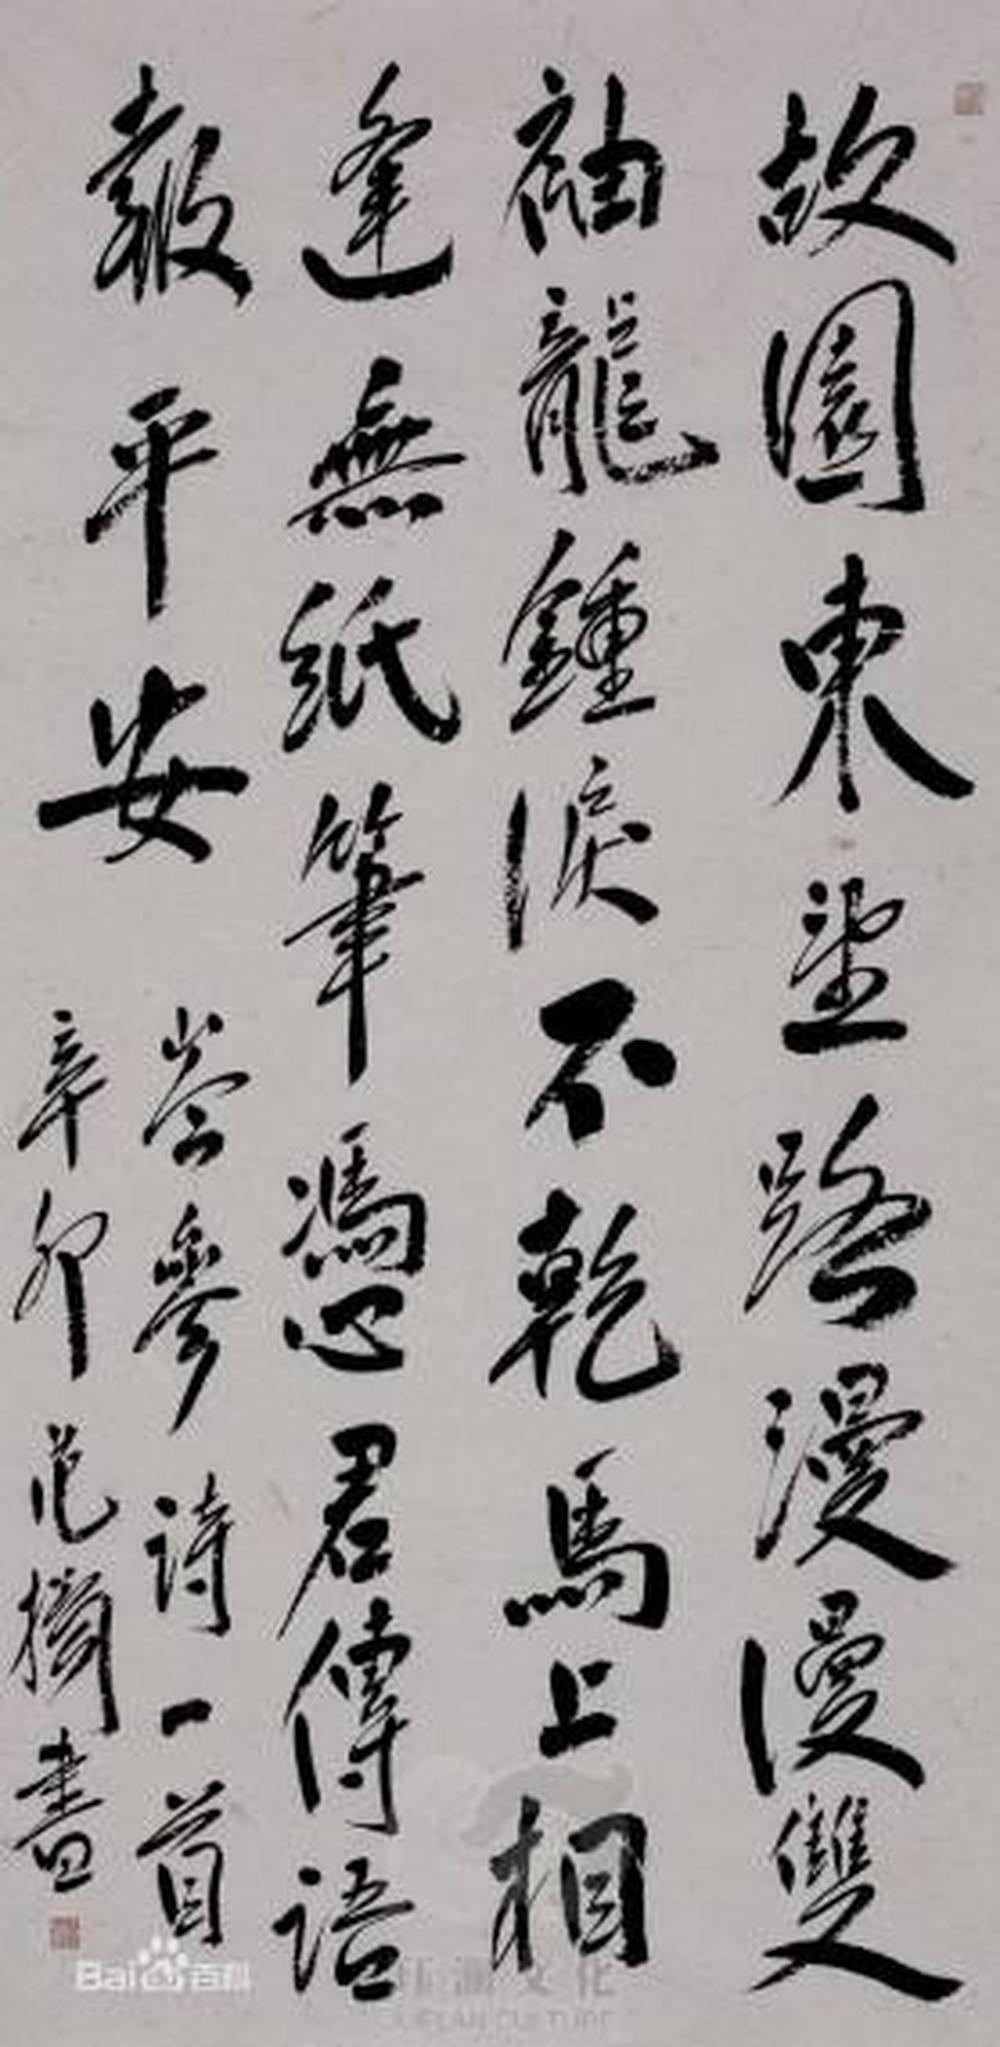 故園東望路漫漫雙
袖龍鍾淚不乾馬上相
逢無紙筆馮心君傳語
報平安
岑參詩一首
辛卯范揚書
Bai 百科
文化
CULTURE